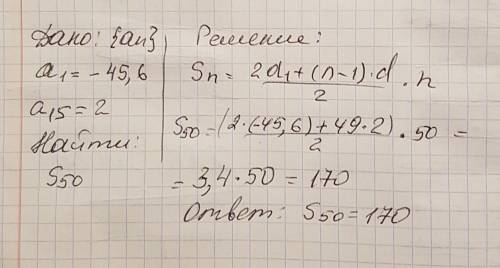 Дано: {an}
a1 = -45,6
a15 = 2
Найти:
S50
Решение:
Sn = 2a1 + (n-1)·d / 2 · n
S50 = (2·(-45,6) + 49·2) / 2 · 50 =
= 3,4·50 = 170
Ответ: S50 = 170